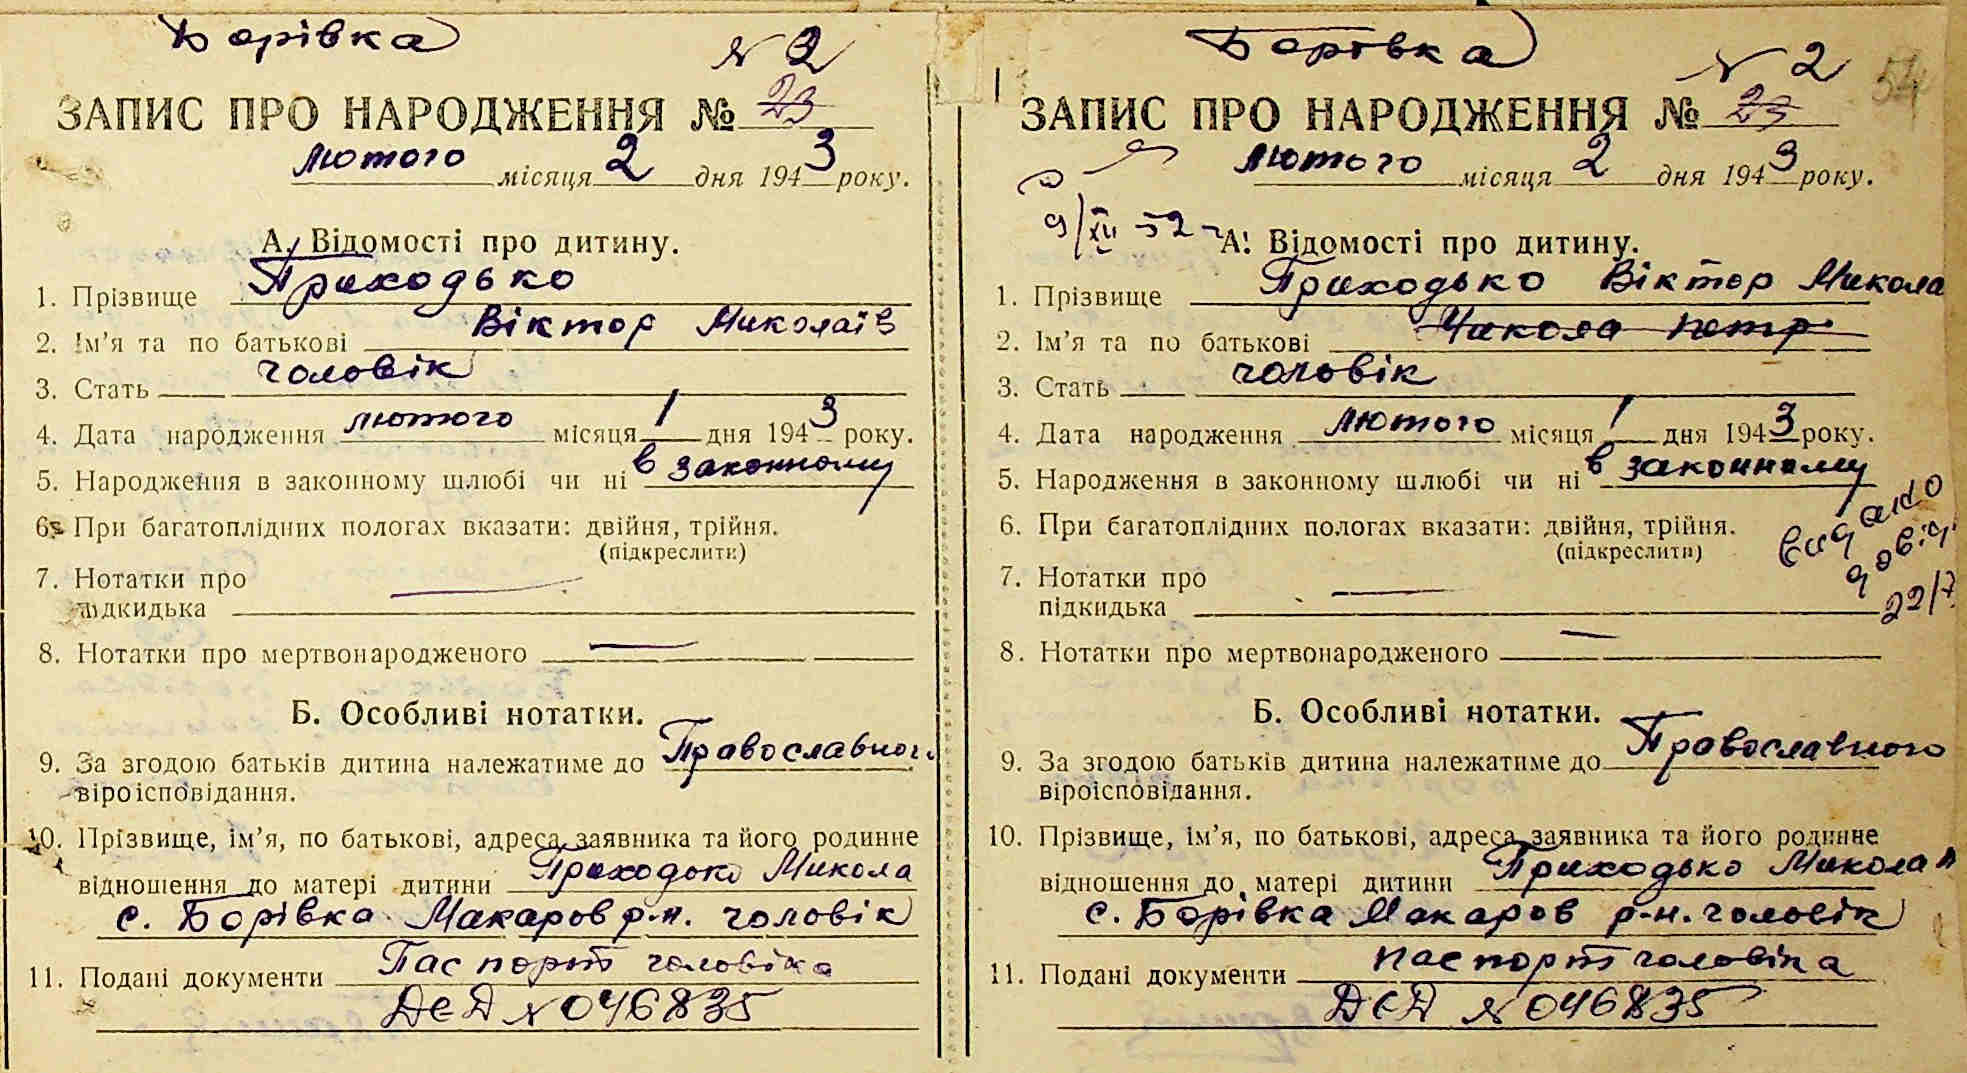 Борівка
№ 2
ЗАПИС ПРО НАРОДЖЕННЯ № 23
лютого місяця 2 дня 1943 року.
А. Відомості про дитину.
1. Прізвище Приходько
2. Ім'я та по батькові Віктор Миколаїв
3. Стать чоловік
4. Дата народження лютого місяця 1 дня 1943 року.
5. Народження в законному шлюбі чи ні в законному
6. При багатоплідних пологах вказати: двійня, трійня.
(підкреслити)
7. Нотатки про —
підкидька
8. Нотатки про мертвонародженого —
Б. Особливі нотатки.
9. За згодою батьків дитина належатиме до Православного
віроісповідання.
10. Прізвище, ім'я, по батькові, адреса заявника та його родинне
відношення до матері дитини Приходько Микола
с. Борівка Макаров р-н. чоловік
11. Подані документи Паспорт чоловіка
ДСД № 046835
Борівка
№ 2
54
ЗАПИС ПРО НАРОДЖЕННЯ № 23
лютого місяця 2 дня 1943 року.
9/XII-52
А. Відомості про дитину.
1. Прізвище Приходько Віктор Микола
2. Ім'я та по батькові Микола Петр
3. Стать чоловік
4. Дата народження лютого місяця 1 дня 1943 року.
5. Народження в законному шлюбі чи ні в законному
6. При багатоплідних пологах вказати: двійня, трійня.
(підкреслити)
видано
довід
22/7
7. Нотатки про —
підкидька
8. Нотатки про мертвонародженого —
Б. Особливі нотатки.
9. За згодою батьків дитина належатиме до Православного
віроісповідання.
10. Прізвище, ім'я, по батькові, адреса заявника та його родинне
відношення до матері дитини Приходько Микола П
с. Борівка Макаров р-н. чоловік
11. Подані документи Паспорт чоловіка
ДСД № 046835